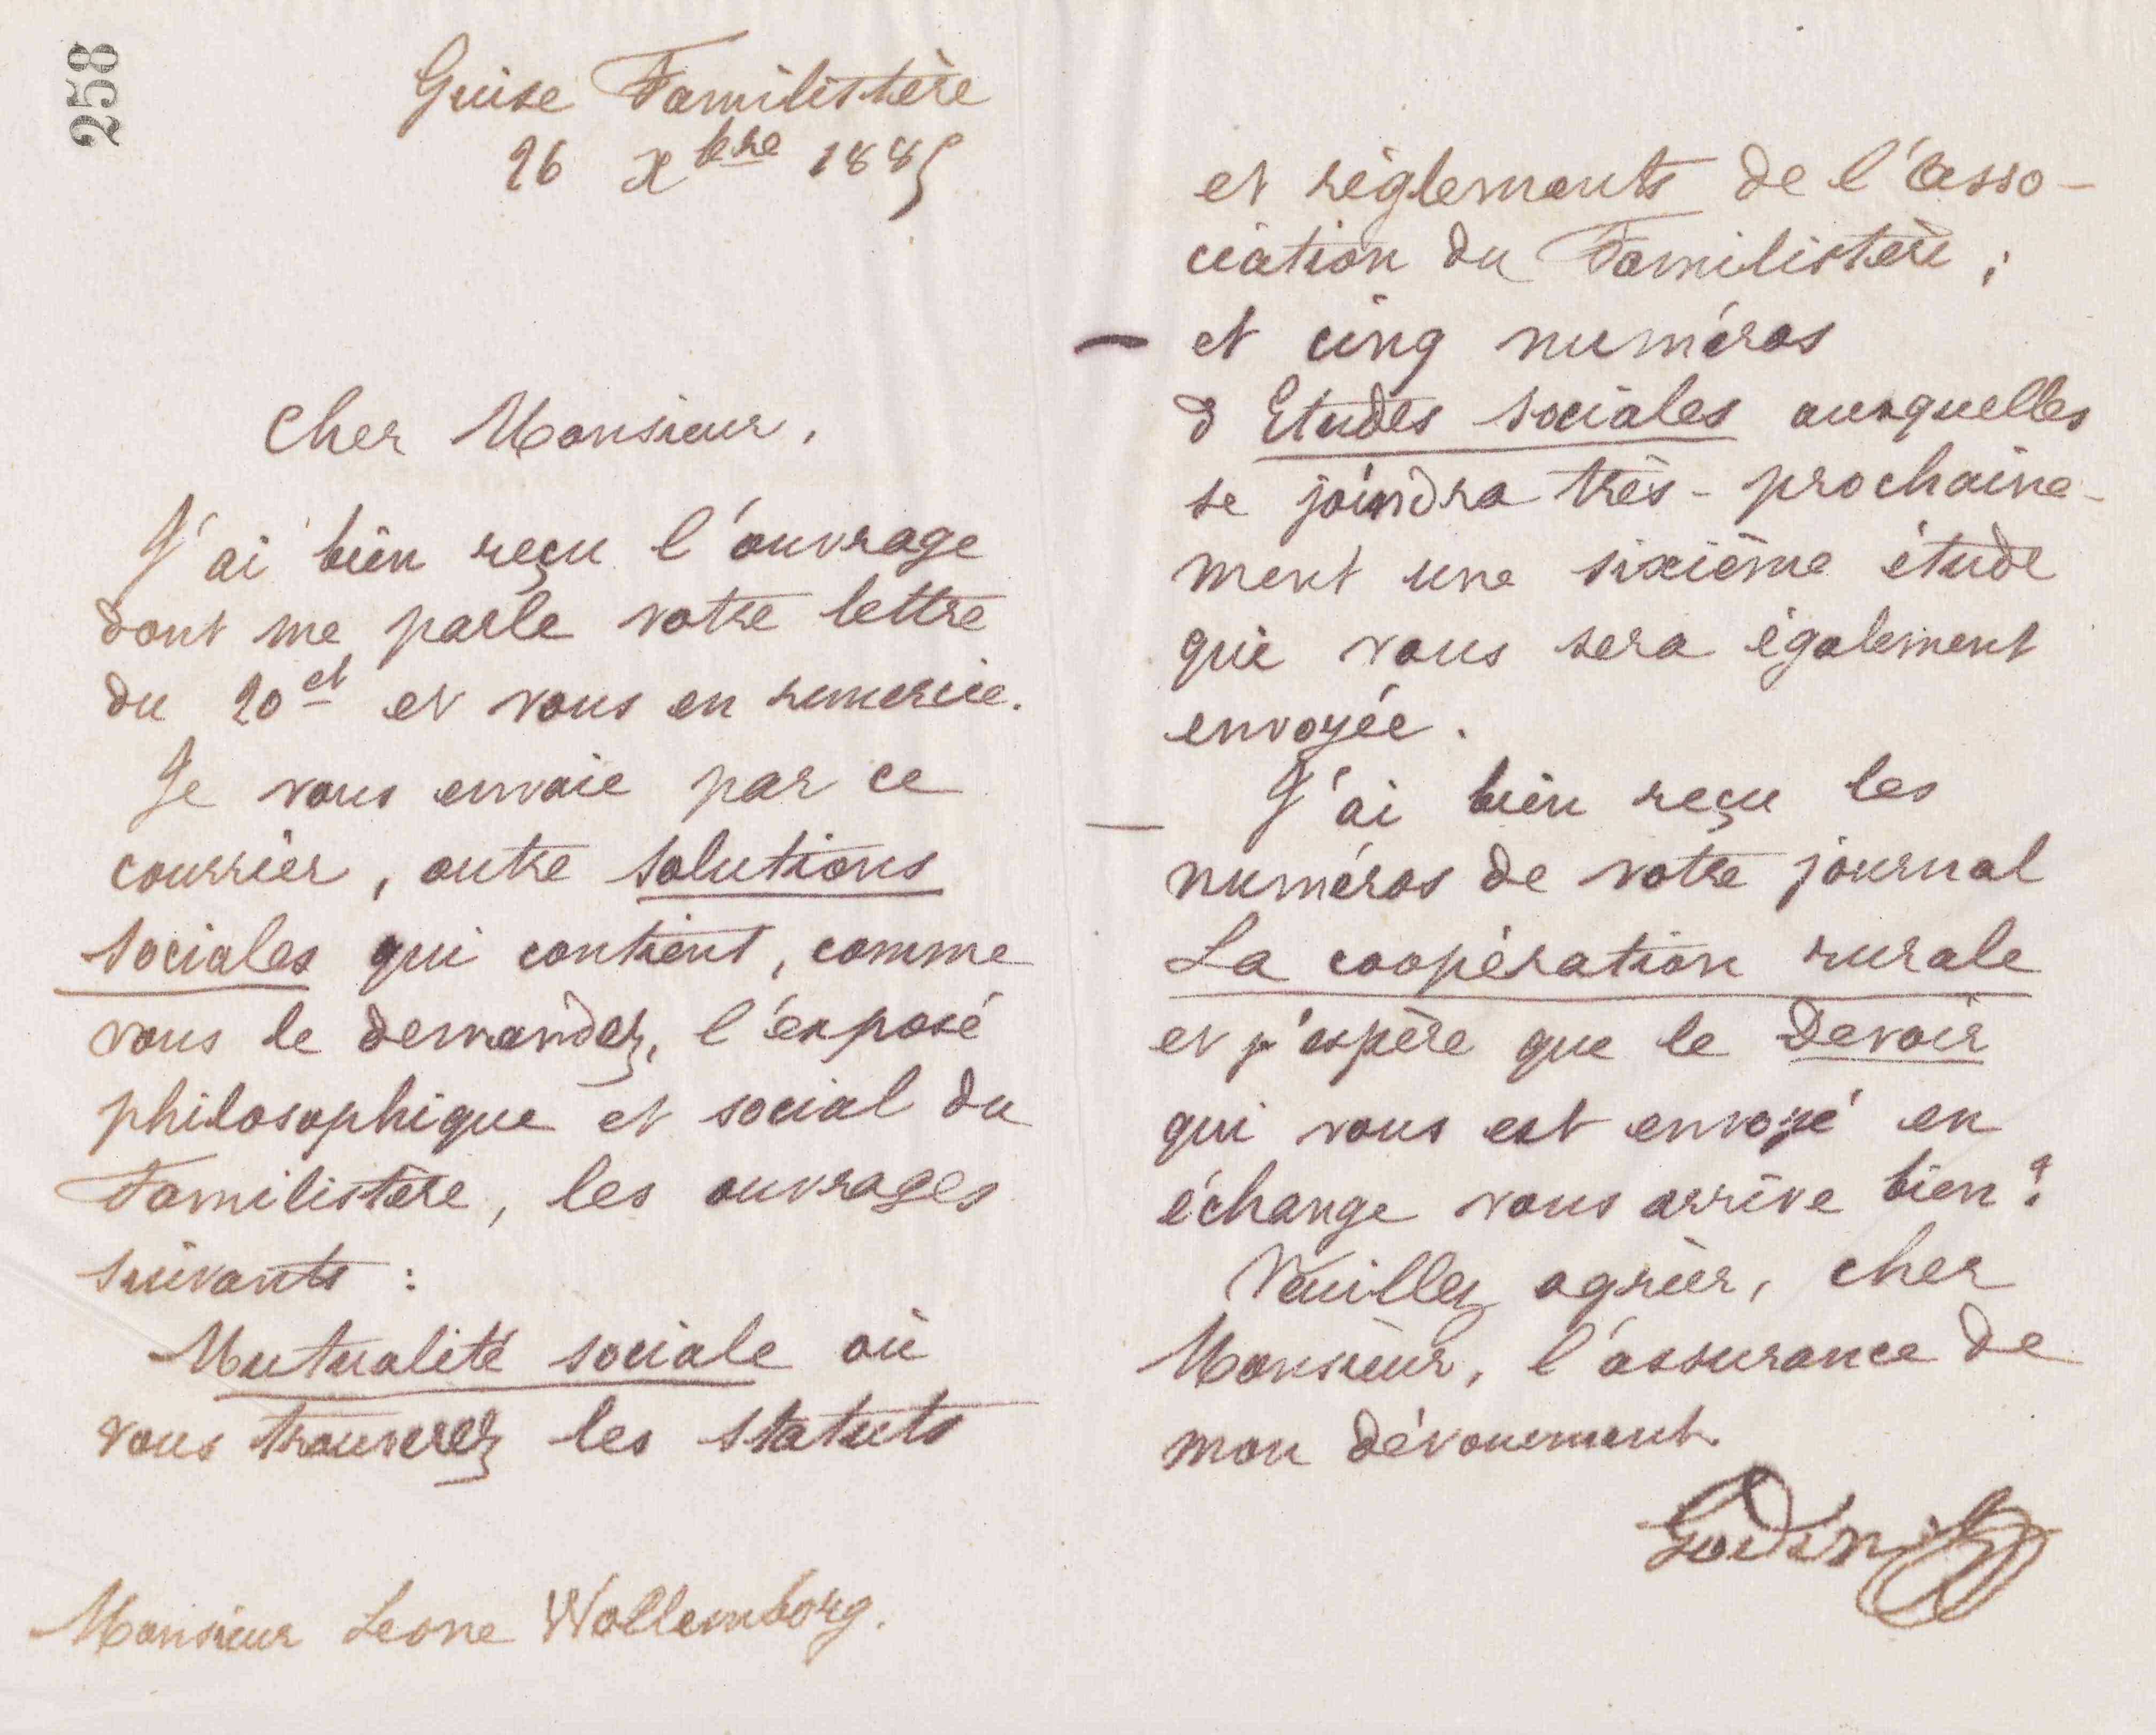 258
Guise Familistère
26 Xbre 1885
Cher Monsieur,
J'ai bien reçu l'ouvrage
dont me parle votre lettre
du 20 ct et vous en remercie.
Je vous envoie par ce
courrier, outre Solutions
sociales qui contient, comme
vous le demandez, l'exposé
philosophique et social du
Familistère, les ouvrages
suivants :
Mutualité sociale où
vous trouverez les statuts
Monsieur Leone Wollemborg.
et règlements de l'Asso-
ciation du Familistère ;
— et cinq numéros
d'Etudes sociales auxquelles
se joindra très-prochaine-
ment une sixième étude
qui vous sera également
envoyée.
— J'ai bien reçu les
numéros de votre journal
La coopération rurale
et j'espère que le Devoir
qui vous est envoyé en
échange vous arrive bien ?
Veuillez agréer, cher
Monsieur, l'assurance de
mon dévouement.
Godin